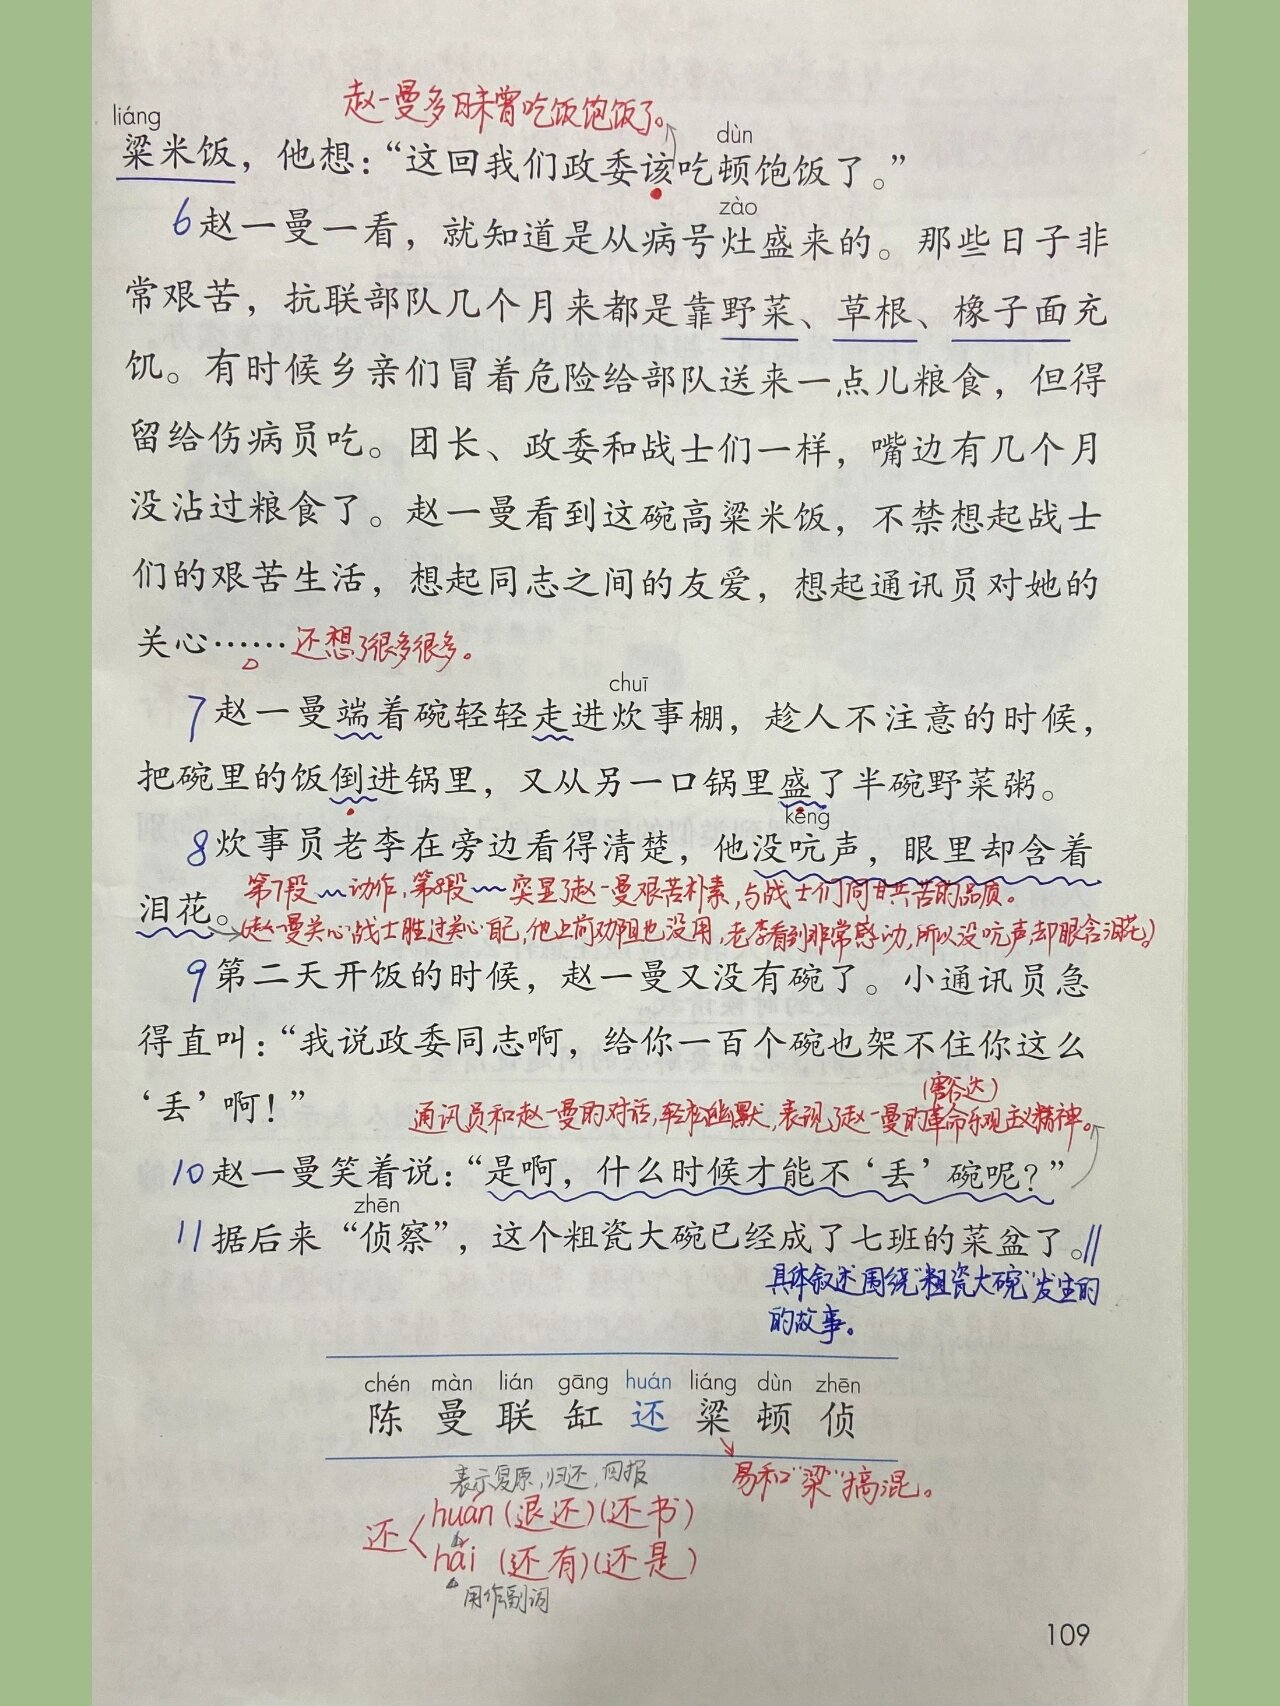 赵一曼多日未曾吃饭饱饭了。
liáng
dùn
粱米饭，他想：“这回我们政委该吃顿饱饭了。”
zào
6赵一曼一看，就知道是从病号灶盛来的。那些日子非
常艰苦，抗联部队几个月来都是靠野菜、草根、橡子面充
饥。有时候乡亲们冒着危险给部队送来一点儿粮食，但得
留给伤病员吃。团长、政委和战士们一样，嘴边有几个月
没沾过粮食了。赵一曼看到这碗高粱米饭，不禁想起战士
们的艰苦生活，想起同志之间的友爱，想起通讯员对她的
关心……还想了很多很多。
chuī
7赵一曼端着碗轻轻走进炊事棚，趁人不注意的时候，
把碗里的饭倒进锅里，又从另一口锅里盛了半碗野菜粥。
kēng
8炊事员老李在旁边看得清楚，他没吭声，眼里却含着
第7段 动作，第8段 突显了赵一曼艰苦朴素，与战士们同甘共苦的品质。
泪花。
(赵一曼关心战士胜过关心自己，他上前劝阻也没用，老李看到非常感动，所以没吭声，却眼含泪花。)
9第二天开饭的时候，赵一曼又没有碗了。小通讯员急
得直叫：“我说政委同志啊，给你一百个碗也架不住你这么
‘丢’啊！”
(豁达)
通讯员和赵一曼的对话，轻松幽默，表现了赵一曼的革命乐观主义精神。
10赵一曼笑着说：“是啊，什么时候才能不‘丢’碗呢？”
zhēn
11据后来“侦察”，这个粗瓷大碗已经成了七班的菜盆了。
具体叙述围绕“粗瓷大碗”发生的
的故事。
chén màn lián gāng huán liáng dùn zhēn
陈 曼 联 缸 还 粱 顿 侦
表示复原，归还，回报
易和“梁”搞混。
huán(退还)(还书)
还
hái (还有)(还是)
用作副词
109